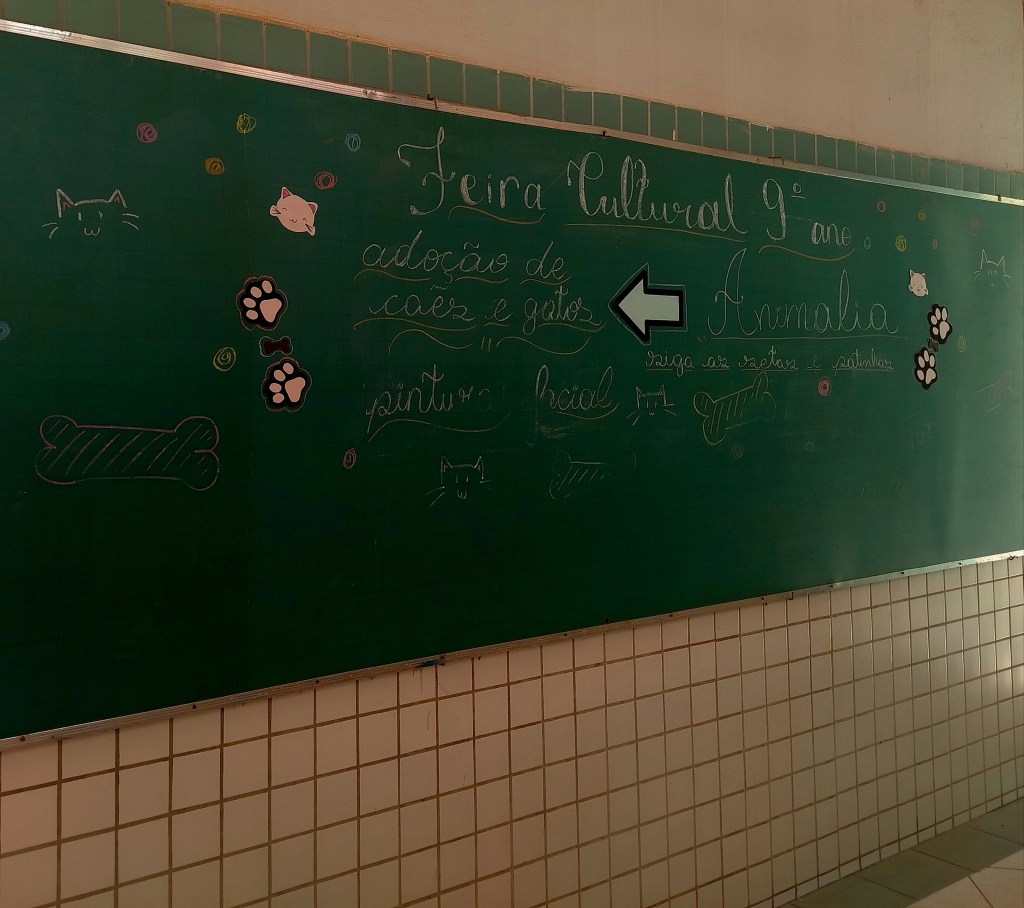 Feira Cultural 9º ano
adoção de
cães e gatos
Animalia
siga as setas e patinhas
pintura facial